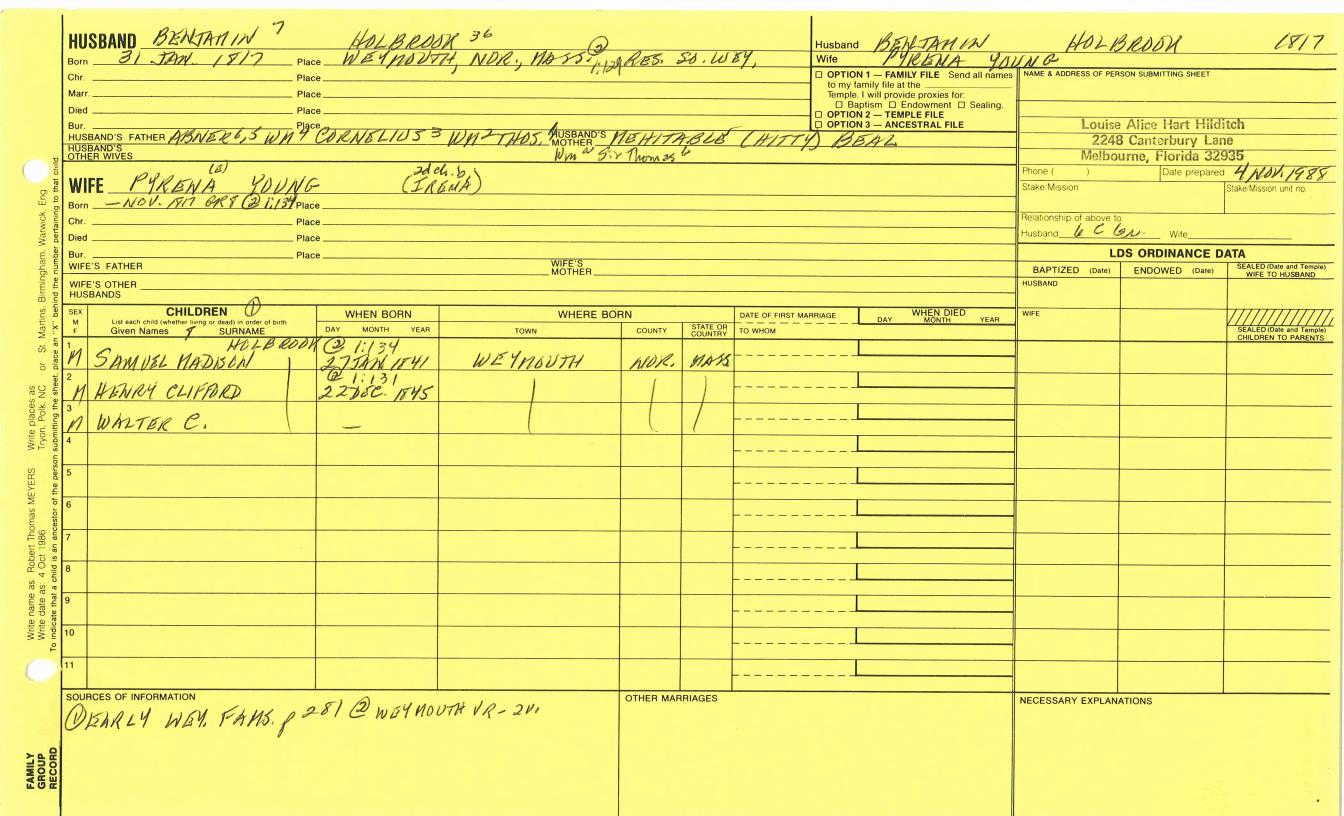 HUSBAND BENJAMIN 7 HOLBROOK 36
Born 31 JAN. 1817 Place WEYMOUTH, NOR., MASS. ② 1:129 RES. SO. WEY.
Chr. Place
Marr. Place
Died Place
Bur. Place
HUSBAND'S FATHER ABNER 6, 5 WM 4 CORNELIUS 3 WM 2 THOS. 1 HUSBAND'S MOTHER MEHITABLE (HITTY) BEAL
HUSBAND'S OTHER WIVES Wm a Sir Thomas b
WIFE PYRENA (a) YOUNG 2d ch. b (IRENA)
Born — NOV. 1817 GR8 ② 1:134 Place
Chr. Place
Died Place
Bur. Place
WIFE'S FATHER WIFE'S MOTHER
WIFE'S OTHER HUSBANDS
Husband BENJAMIN HOLBROOK 1817
Wife PYRENA YOUNG
OPTION 1 — FAMILY FILE Send all names
to my family file at the
Temple. I will provide proxies for:
Baptism Endowment Sealing.
OPTION 2 — TEMPLE FILE
OPTION 3 — ANCESTRAL FILE
NAME & ADDRESS OF PERSON SUBMITTING SHEET
Louise Alice Hart Hilditch
2248 Canterbury Lane
Melbourne, Florida 32935
Phone ( ) Date prepared 4 NOV. 1988
Stake/Mission Stake/Mission unit no.
Relationship of above to:
Husband 6 C Wife
LDS ORDINANCE DATA
BAPTIZED (Date) ENDOWED (Date) SEALED (Date and Temple) WIFE TO HUSBAND
HUSBAND
WIFE
SEALED (Date and Temple) CHILDREN TO PARENTS
SEX M F
CHILDREN ①
List each child (whether living or dead) in order of birth
Given Names 8 SURNAME
WHEN BORN
DAY MONTH YEAR
WHERE BORN
TOWN COUNTY STATE OR COUNTRY
DATE OF FIRST MARRIAGE
TO WHOM
WHEN DIED
DAY MONTH YEAR
1 HOLBROOK ② 1:134
M SAMUEL MADISON 27 JAN 1841 WEYMOUTH NOR. MASS
2 ② 1:131
M HENRY CLIFFORD 22 DEC. 1845
3
M WALTER C. —
4
5
6
7
8
9
10
11
SOURCES OF INFORMATION
① EARLY WEY. FAMS. p 281 ② WEYMOUTH VR - 2V.
OTHER MARRIAGES
NECESSARY EXPLANATIONS
Write name as: Robert Thomas MEYERS Write places as: Tryon, Polk, NC or St. Martins, Birmingham, Warwick, Eng
Write date as: 4 Oct 1986
To indicate that a child is an ancestor of the person submitting the sheet, place an "X" behind the number pertaining to that child
FAMILY GROUP RECORD